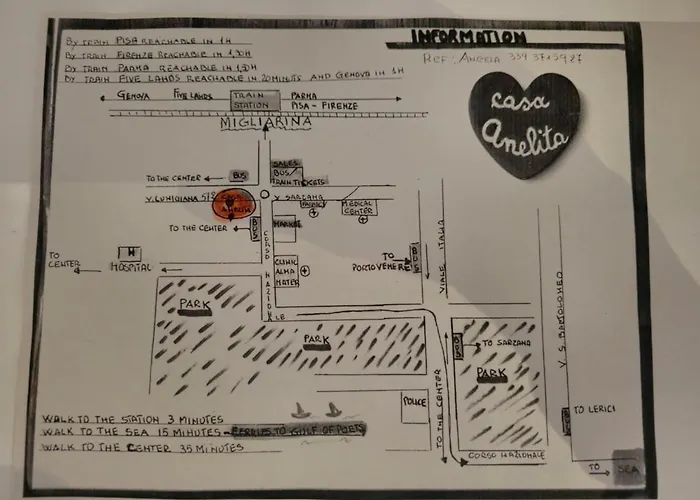 INFORMATION
BY TRAIN PISA REACHABLE IN 1H
BY TRAIN FIRENZE REACHABLE IN 1,30H
BY TRAIN PARMA REACHABLE IN 1,50H
BY TRAIN FIVE LANDS REACHABLE IN 20 MINUTS AND GENOVA IN 1H
REF. ANGELA
casa
Anelita
GENOVA FIVE LANDS TRAIN STATION PARMA
PISA - FIRENZE
MIGLIARINA
SALES
BUS/
TRAIN TICKETS
TO THE CENTER BUS
V. LUNIGIANA
V SARZANA
MEDICAL
CENTER
TO THE CENTER BUS
MARKET
CORSO NAZIONALE
CLINIC
ALMA
MATER
TO
CENTER
H
HOSPITAL
TO
PORTOVENERE
BUS
VIALE ITALIA
V. S. BARTOLOMEO
PARK
PARK
BUS TO SARZANA
PARK
POLICE
TO THE CENTER
BUS TO LERICI
CORSO NAZIONALE
TO SEA
WALK TO THE STATION 3 MINUTES
WALK TO THE SEA 15 MINUTES - FERRIES TO GULF OF POETS
WALK TO THE CENTER 35 MINUTES